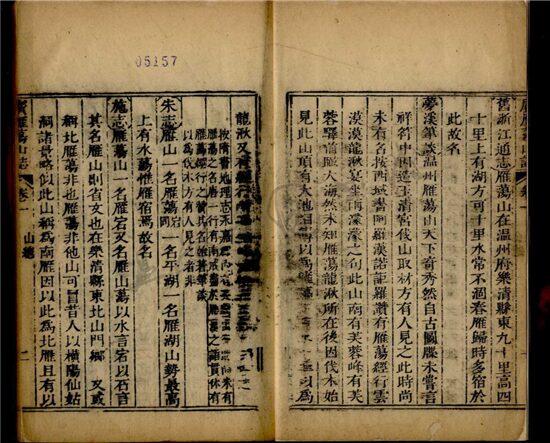 05157
舊浙江通志雁蕩山在溫州府樂清縣東九十里高四
十里上有湖方可十里水常不涸春雁歸時多宿於
此故名
夢溪筆談溫州雁蕩山天下奇秀然自古圖牒未嘗言
祥符中因造玉清宮伐山取材方有人見之此時尚
未有名按西域書阿羅漢諾詎羅讚有雁蕩經行雲
漠漠龍湫宴坐雨濛濛之句此山南有芙蓉峰有芙
蓉驛前瞰大海然未知雁蕩龍湫所在後因伐木始
見此山頂有大池相傳以為雁蕩下有二潭水以為
龍湫又有經行
按隋書地理志永嘉
雁蕩之名唐一行有南戒盡於雁蕩之語貫休有
雁蕩經行之讚其名蓋著筆談
以為伐木方有人見之者非
朱志雁山一名雁蕩一名平湖一名雁湖山勢最高
上有水蕩惟雁宿焉故名
施志雁蕩山一名雁岩又名雁山蕩以水言宕以石言
其名雁山則省文也在樂清縣東北山門鄉 又或
稱北雁蕩非也雁蕩非他山可冒昔人以橫陽仙姑
洞諸景略似此山稱為南雁因以此為北雁且有以
廣雁蕩山誌 卷一 山總 二